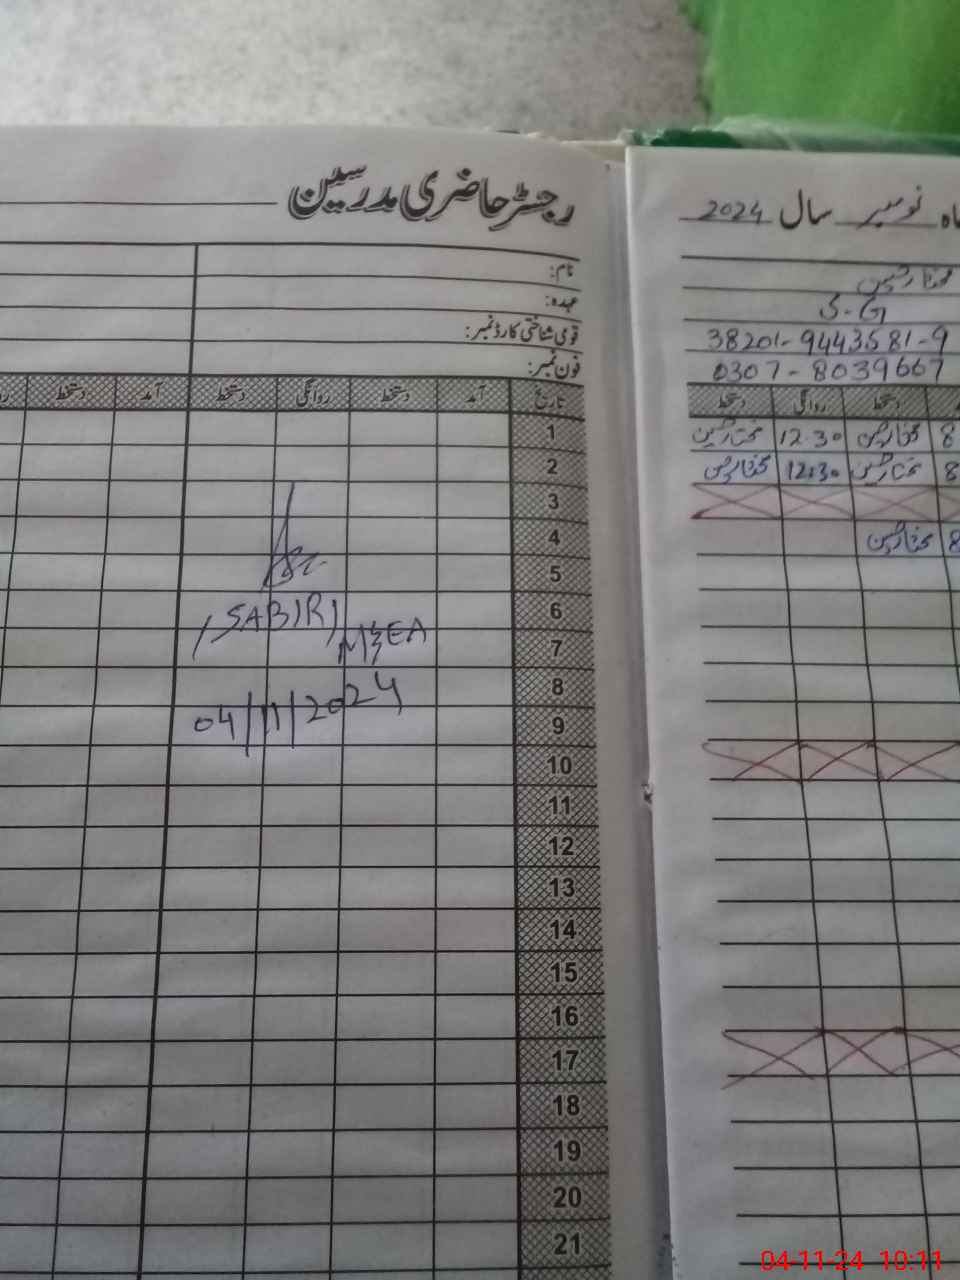 رجسٹر حاضری مدرسین
نام:
عہدہ:
قومی شناختی کارڈ نمبر:
فون نمبر:
تاریخ آمد دستخط روانگی دستخط آمد دستخط
1
2
3
4
5
6
7
8
9
10
11
12
13
14
15
16
17
18
19
20
21
(SABIR)
M&EA
04/11/2024
ماہ نومبر سال 2024
مختار حسین
S-G
38201-9443581-9
0307-8039667
دستخط روانگی دستخط
8 مختار حسین 12.30 مختار حسین
8 مختار حسین 12:30 مختار حسین
8 مختار حسین
04-11-24 10:11